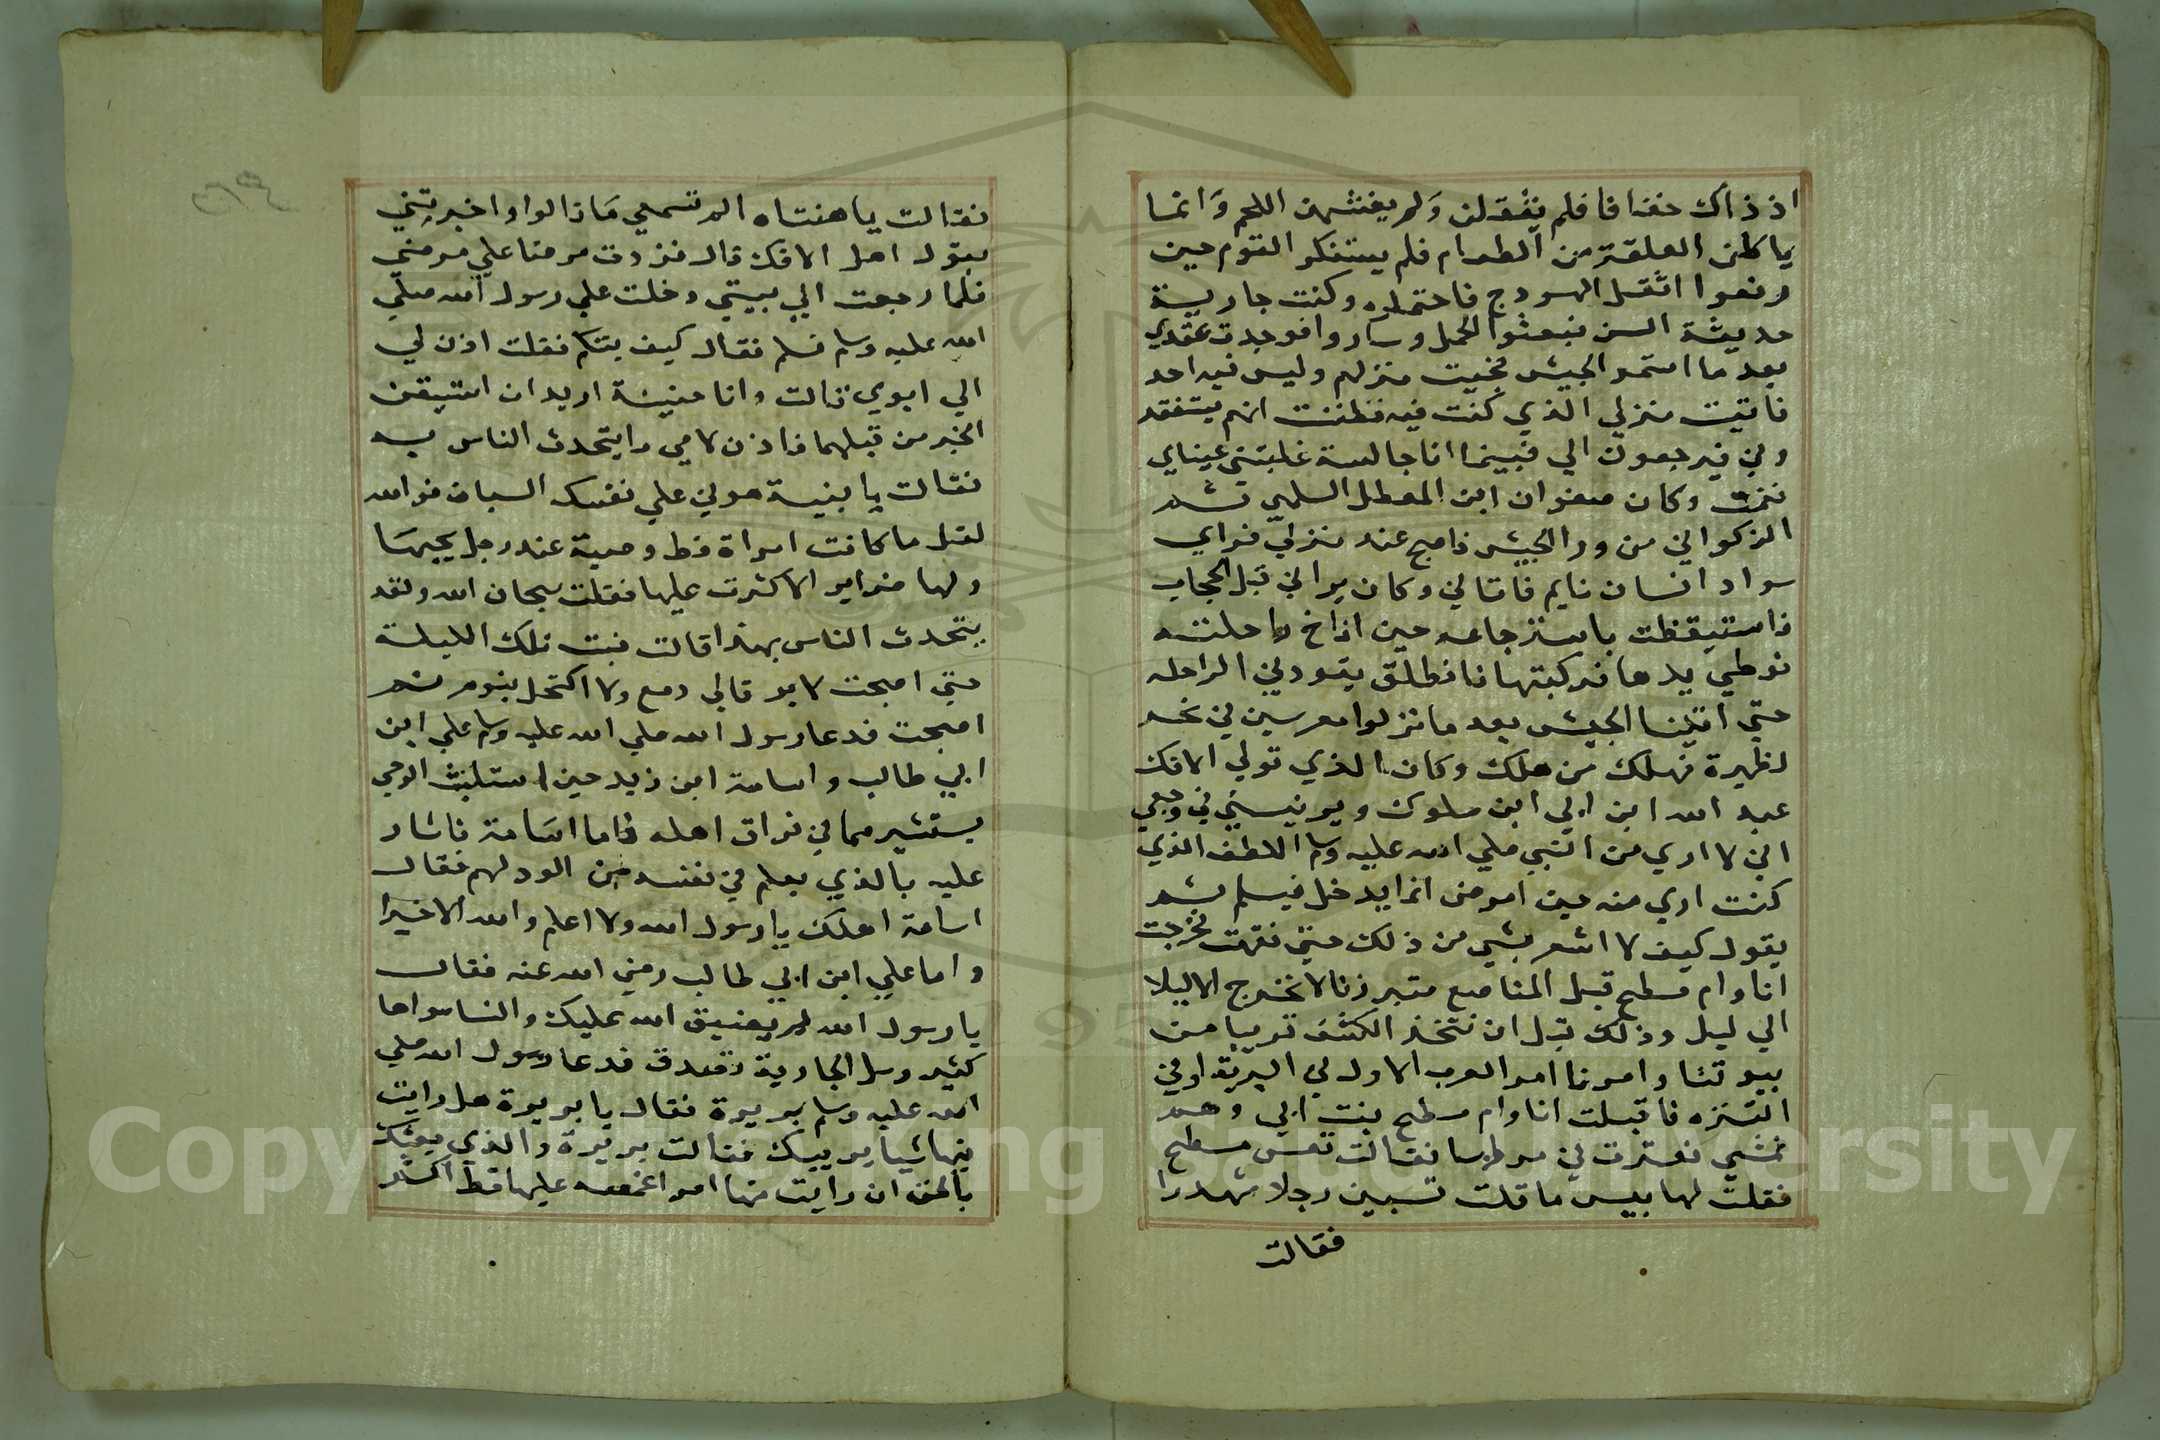 اذ ذاك خفافا فلم يثقلن ولم يغشهن اللحم وانما
ياكلن العلقة من الطعام فلم يستنكر القوم حين
رفعوا اثقل الهودج فاحتملوه وكنت جارية
حديثة السن فبعثوا الجمل وساروا فوجدت عقدي
بعد ما استمر الجيش فجيت منزلهم وليس فيه احد
فاتيت منزلي الذي كنت فيه فظننت انهم
فيرجعون الي فبينما انا جالسة غلبتني عيناي
فنمت وكان صفوان ابن المعطل السلمي ثم
الزكواني من ورا الجيش فاصبح عند منزلي فراي
سواد انسان نايم فاتاني وكان يراني قبل الحجاب
فاستيقظت باسترجاعه حين اناخ راحلته
فوطي يدها فركبتها فانطلق يقودني الراحله
حتي اتينا الجيش بعد ما نزلوا معرسين في نحر
لظهيرة فهلك من هلك وكان الذي تولي الافك
عبد الله ابن ابي ابن سلوك ويريبني في وجعي
اني لا اري من النبي صلي الله عليه وسلم اللطف الذي
كنت اري منه حين امرض انما يدخل فيسلم ثم
يقول كيف لا اشعر بشي من ذلك حتي نقهت فخرجت
انا وام مسطح قبل المناصع متبرزنا لا نخرج الا ليلا
الي ليل وذلك قبل ان نتخذ الكنف قريبا من
بيوتنا وامرنا امر العرب الاول في البرية او في
التنزه فاقبلت انا وام مسطح بنت ابي رهم
نمشي فعثرت في مرطها فقالت تعس مسطح
فقلت لها بيس ما قلت تسبين رجلا شهد بدرا
فقالت
٢٦٩
فقالت يا هنتاه الم تسمعي ما قالوا واخبرتني
بقول اهل الافك قال فزدت مرضا علي مرضي
فلما رجعت الي بيتي دخلت علي رسول الله صلي
الله عليه وسلم فسلم فقال كيف بتكم فقلت اذن لي
الي ابوي قالت وانا حينئة اريد ان استيقن
الخبر من قبلهما فاذن لامي ما يتحدث الناس به
فقالت يا بنية هوني علي نفسك الشان فوالله
لقل ما كانت امراة قط وضية عند رجل يحبها
ولها ضراير الا كثرت عليها فقلت سبحان الله ولقد
يتحدث الناس بهذا قالت فبت تلك الليلة
حتي اصبحت لا يرقا لي دمع ولا اكتحل بنوم ثم
اصبحت فدعا رسول الله صلي الله عليه وسلم علي ابن
ابي طالب واسامة ابن زيد حين استلبث الوحي
يستشيرهما في فراق اهله فاما اسامة فاشار
عليه بالذي يعلم في نفسه من الود لهم فقال
اسامة اهلك يا رسول الله ولا اعلم والله الا خيرا
واما علي ابن ابي طالب رضي الله عنه فقال
يا رسول الله لم يضيق الله عليك والنسا سواها
كثير وسل الجارية تصدق فدعا رسول الله صلي
الله عليه وسلم بريرة فقال يا بريرة هل رايت
فيها شيا يريبك فقالت بريرة والذي بعثك
بالحق ان رايت منها امرا اغمصه عليها قط اكثر
Copyright King Saud University